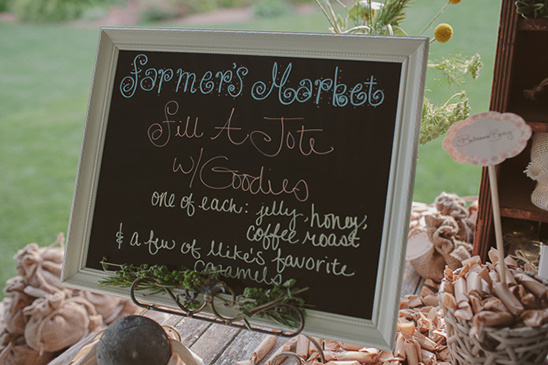 Farmer's Market
Fill A Tote
w/Goodies
one of each: jelly, honey,
coffee roast
& a few of Mike's favorite
caramels